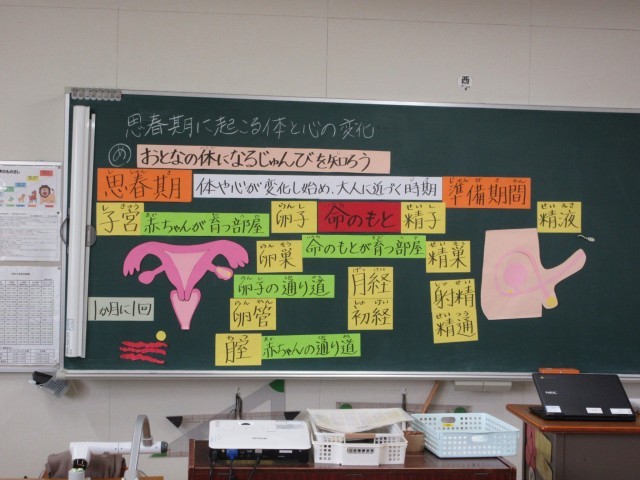 西
思春期に起こる体と心の変化
め おとなの体になるじゅんびを知ろう
思春期 体や心が変化し始め、大人に近づく時期 準備期間
子宮 赤ちゃんが育つ部屋 卵子 命のもと 精子 精液
卵巣 命のもとが育つ部屋 精巣
卵子の通り道 月経 射精
1か月に1回 卵管 初経 精通
腟 赤ちゃんの通り道
NEC